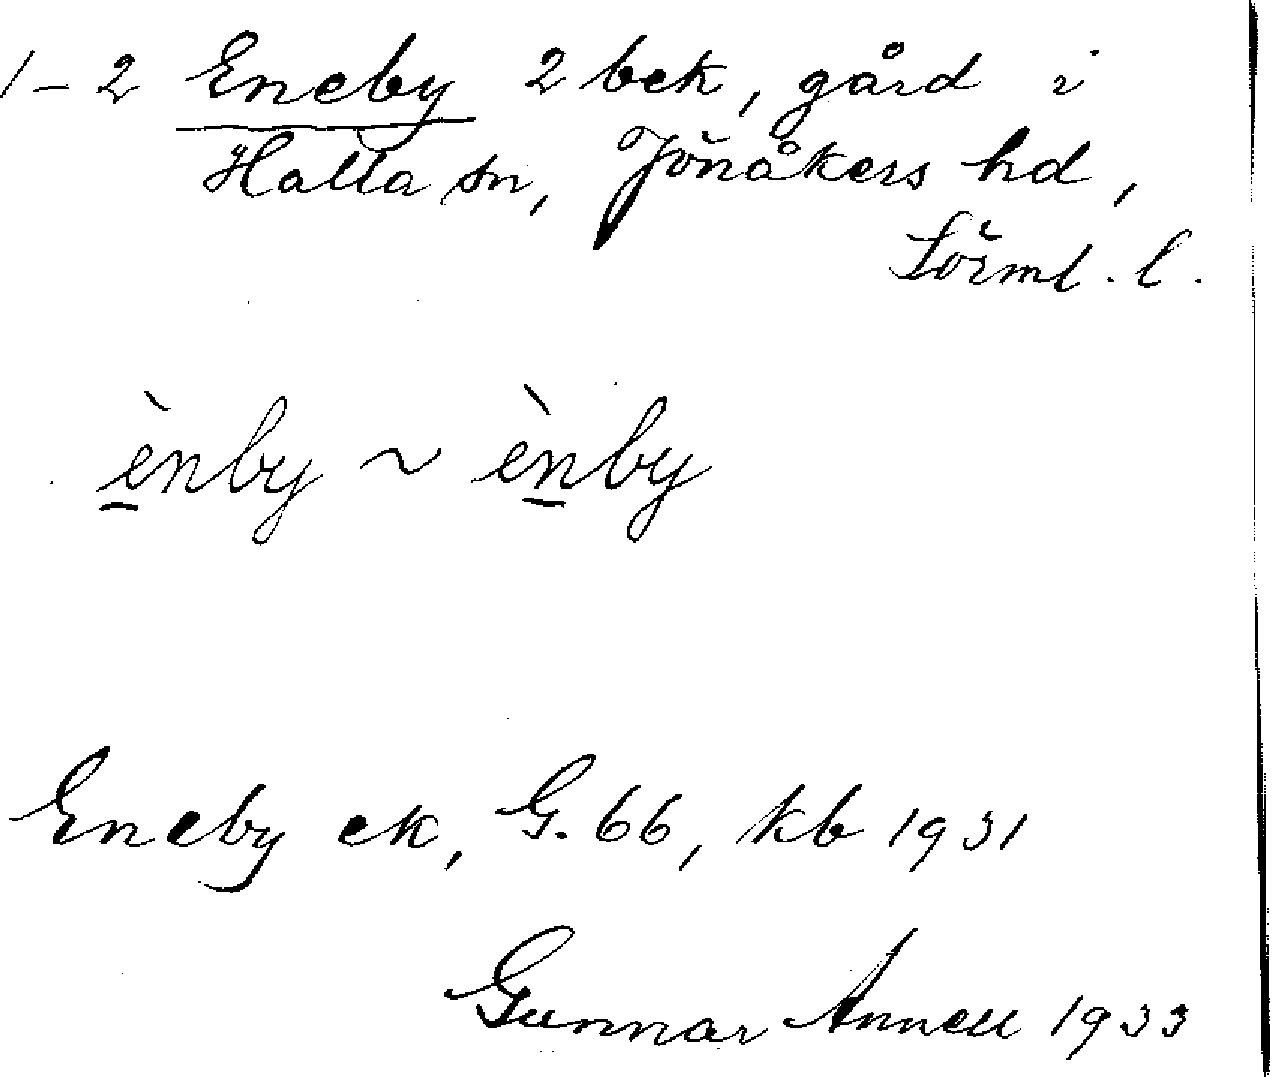 1–2 Eneby 2 bek, gård i
Halla sn, Jönåkers hd,
Sörml. l.
ènby ~ ènby
Eneby ek, G. 66, kb 1931
Gunnar Annell 1933